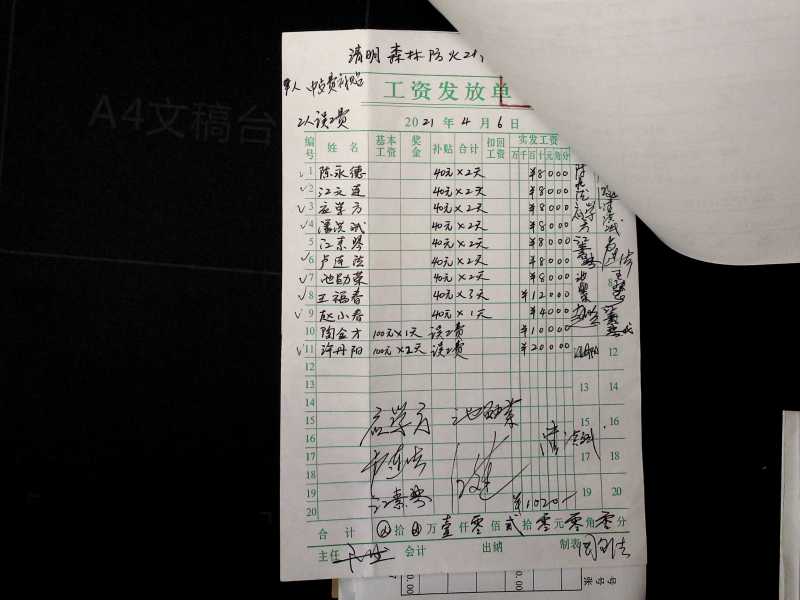 A4文稿台
清明森林防火
中点费补贴
工资发放单
2人误工费
2021年4月6日
编号 姓名 基本工资 奖金 补贴 合计 扣回工资 实发工资
万千百十元角分
1 陈永德 40元×2天 ¥8000
2 江文莲 40元×2天 ¥8000
3 应学方 40元×2天 ¥8000
4 潘洪斌 40元×2天 ¥8000
5 江素琴 40元×2天 ¥8000
6 卢连法 40元×2天 ¥8000
7 池勋荣 40元×2天 ¥8000
8 王福春 40元×3天 ¥12000
9 赵小春 40元×1天 ¥4000
10 陶金才 100元×1天 误工费 ¥10000
11 许丹阳 100元×2天 误工费 ¥20000
12 12
13 13 14
14
15 应学方 池勋荣 15 16
16
17 17 18
18
19 江素琴 19 20
20 ¥1020
合计 拾 万 壹仟零佰贰拾零元零角零分
主任 会计 出纳 制表